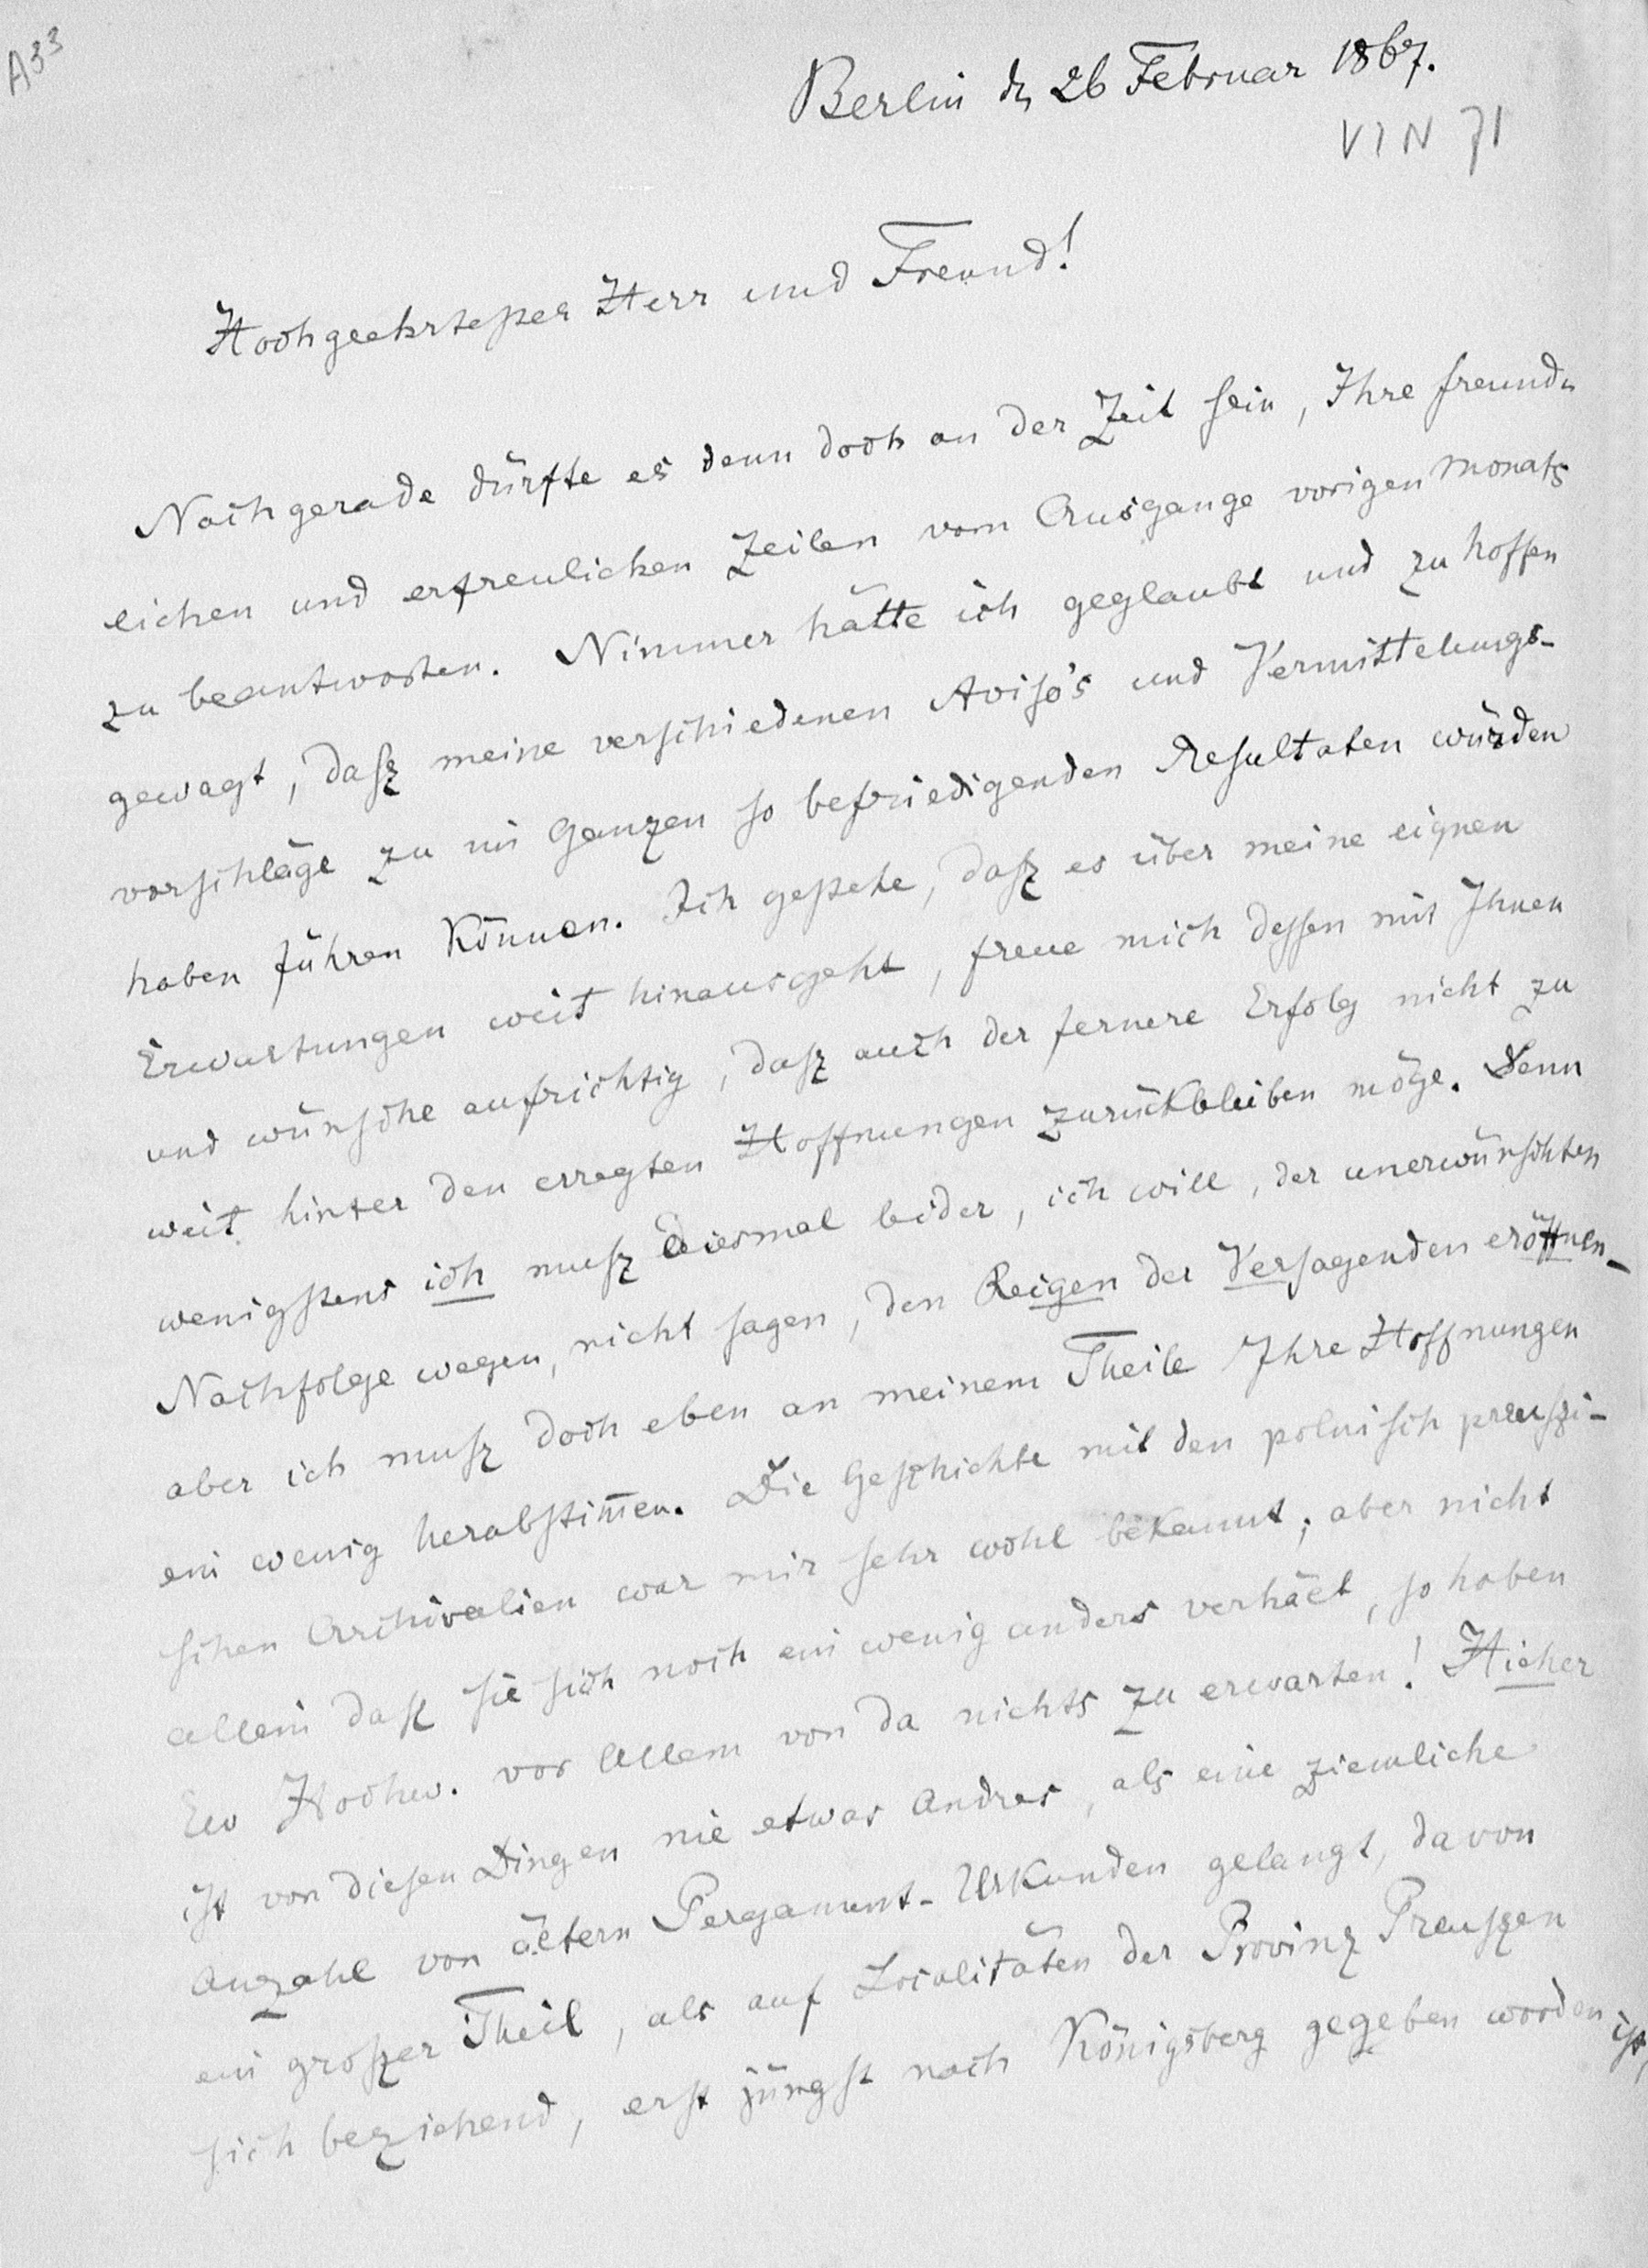 A33
Berlin dn 26 Februar 1867.
VIN 71
Hochgeehrtester Herr und Freund!
Nachgerade dürfte es denn doch an der Zeit sein, Ihre freund-
lichen und erfreulichen Zeilen vom Ausgange vorigen Monats
zu beantworten. Nimmer hätte ich geglaubt und zu hoffen
gewagt, dasz meine verschiedenen Aviso's und Vermittelungs-
vorschläge zu im Ganzen so befriedigenden Resultaten würden
haben führen können. Ich gestehe, dasz es über meine eignen
Erwartungen weit hinausgeht, freue mich dessen mit Ihnen
und wünsche aufrichtig, dasz auch der fernere Erfolg nicht zu
weit hinter den erregten Hoffnungen zurückbleiben möge. Denn
wenigstens ich musz diesmal leider, ich will, der unerwünschten
Nachfolge wegen, nicht sagen, den Reigen der Versagenden eröffnen_
aber ich musz doch eben an meinem Theile Ihre Hoffnungen
ein wenig herabstim̅en. Die Geschichte mit den polnisch preuszi-
schen Archivalien war mir sehr wohl bekannt; aber nicht
allein dasz sie sich noch ein wenig anders verhält, so haben
Ew Hochw. vor Allem von da nichts zu erwarten! Hieher
ist von diesen Dingen nie etwas Andres, als eine ziemliche
Anzahl von ältern Pergament-Urkunden gelangt, davon
ein groszer Theil, als auf Localitäten der Provinz Preuszen
sich beziehend, erst jüngst nach Königsberg gegeben worden ist,